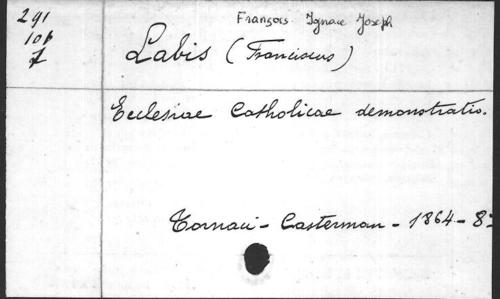 291
106
1
François Ignace Joseph
Labis (Franciscus)
Ecclesiae Catholicae demonstratio.
Tornaci - Casterman - 1864 - 8º